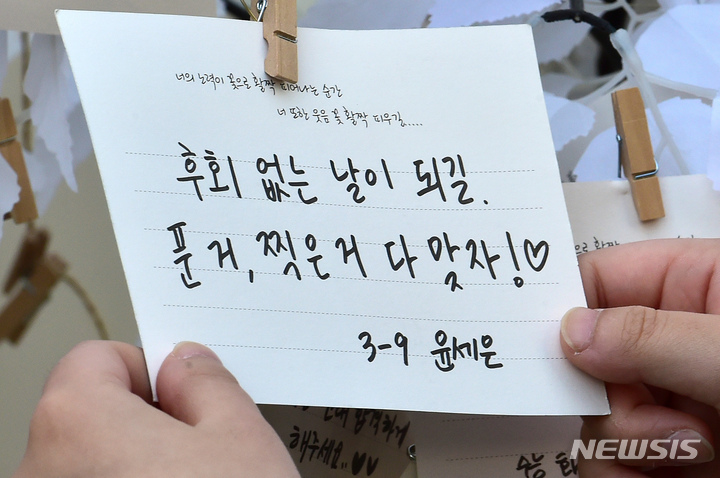 너의 노력이 꽃으로 활짝 피어나는 순간
너 또한 웃음 꽃 활짝 피우길....
후회 없는 날이 되길.
푼 거, 찍은거 다 맞자!♡
3-9 윤세은
으로 활짝
합격하게
해주세요..♥♥
수능
NEWSIS